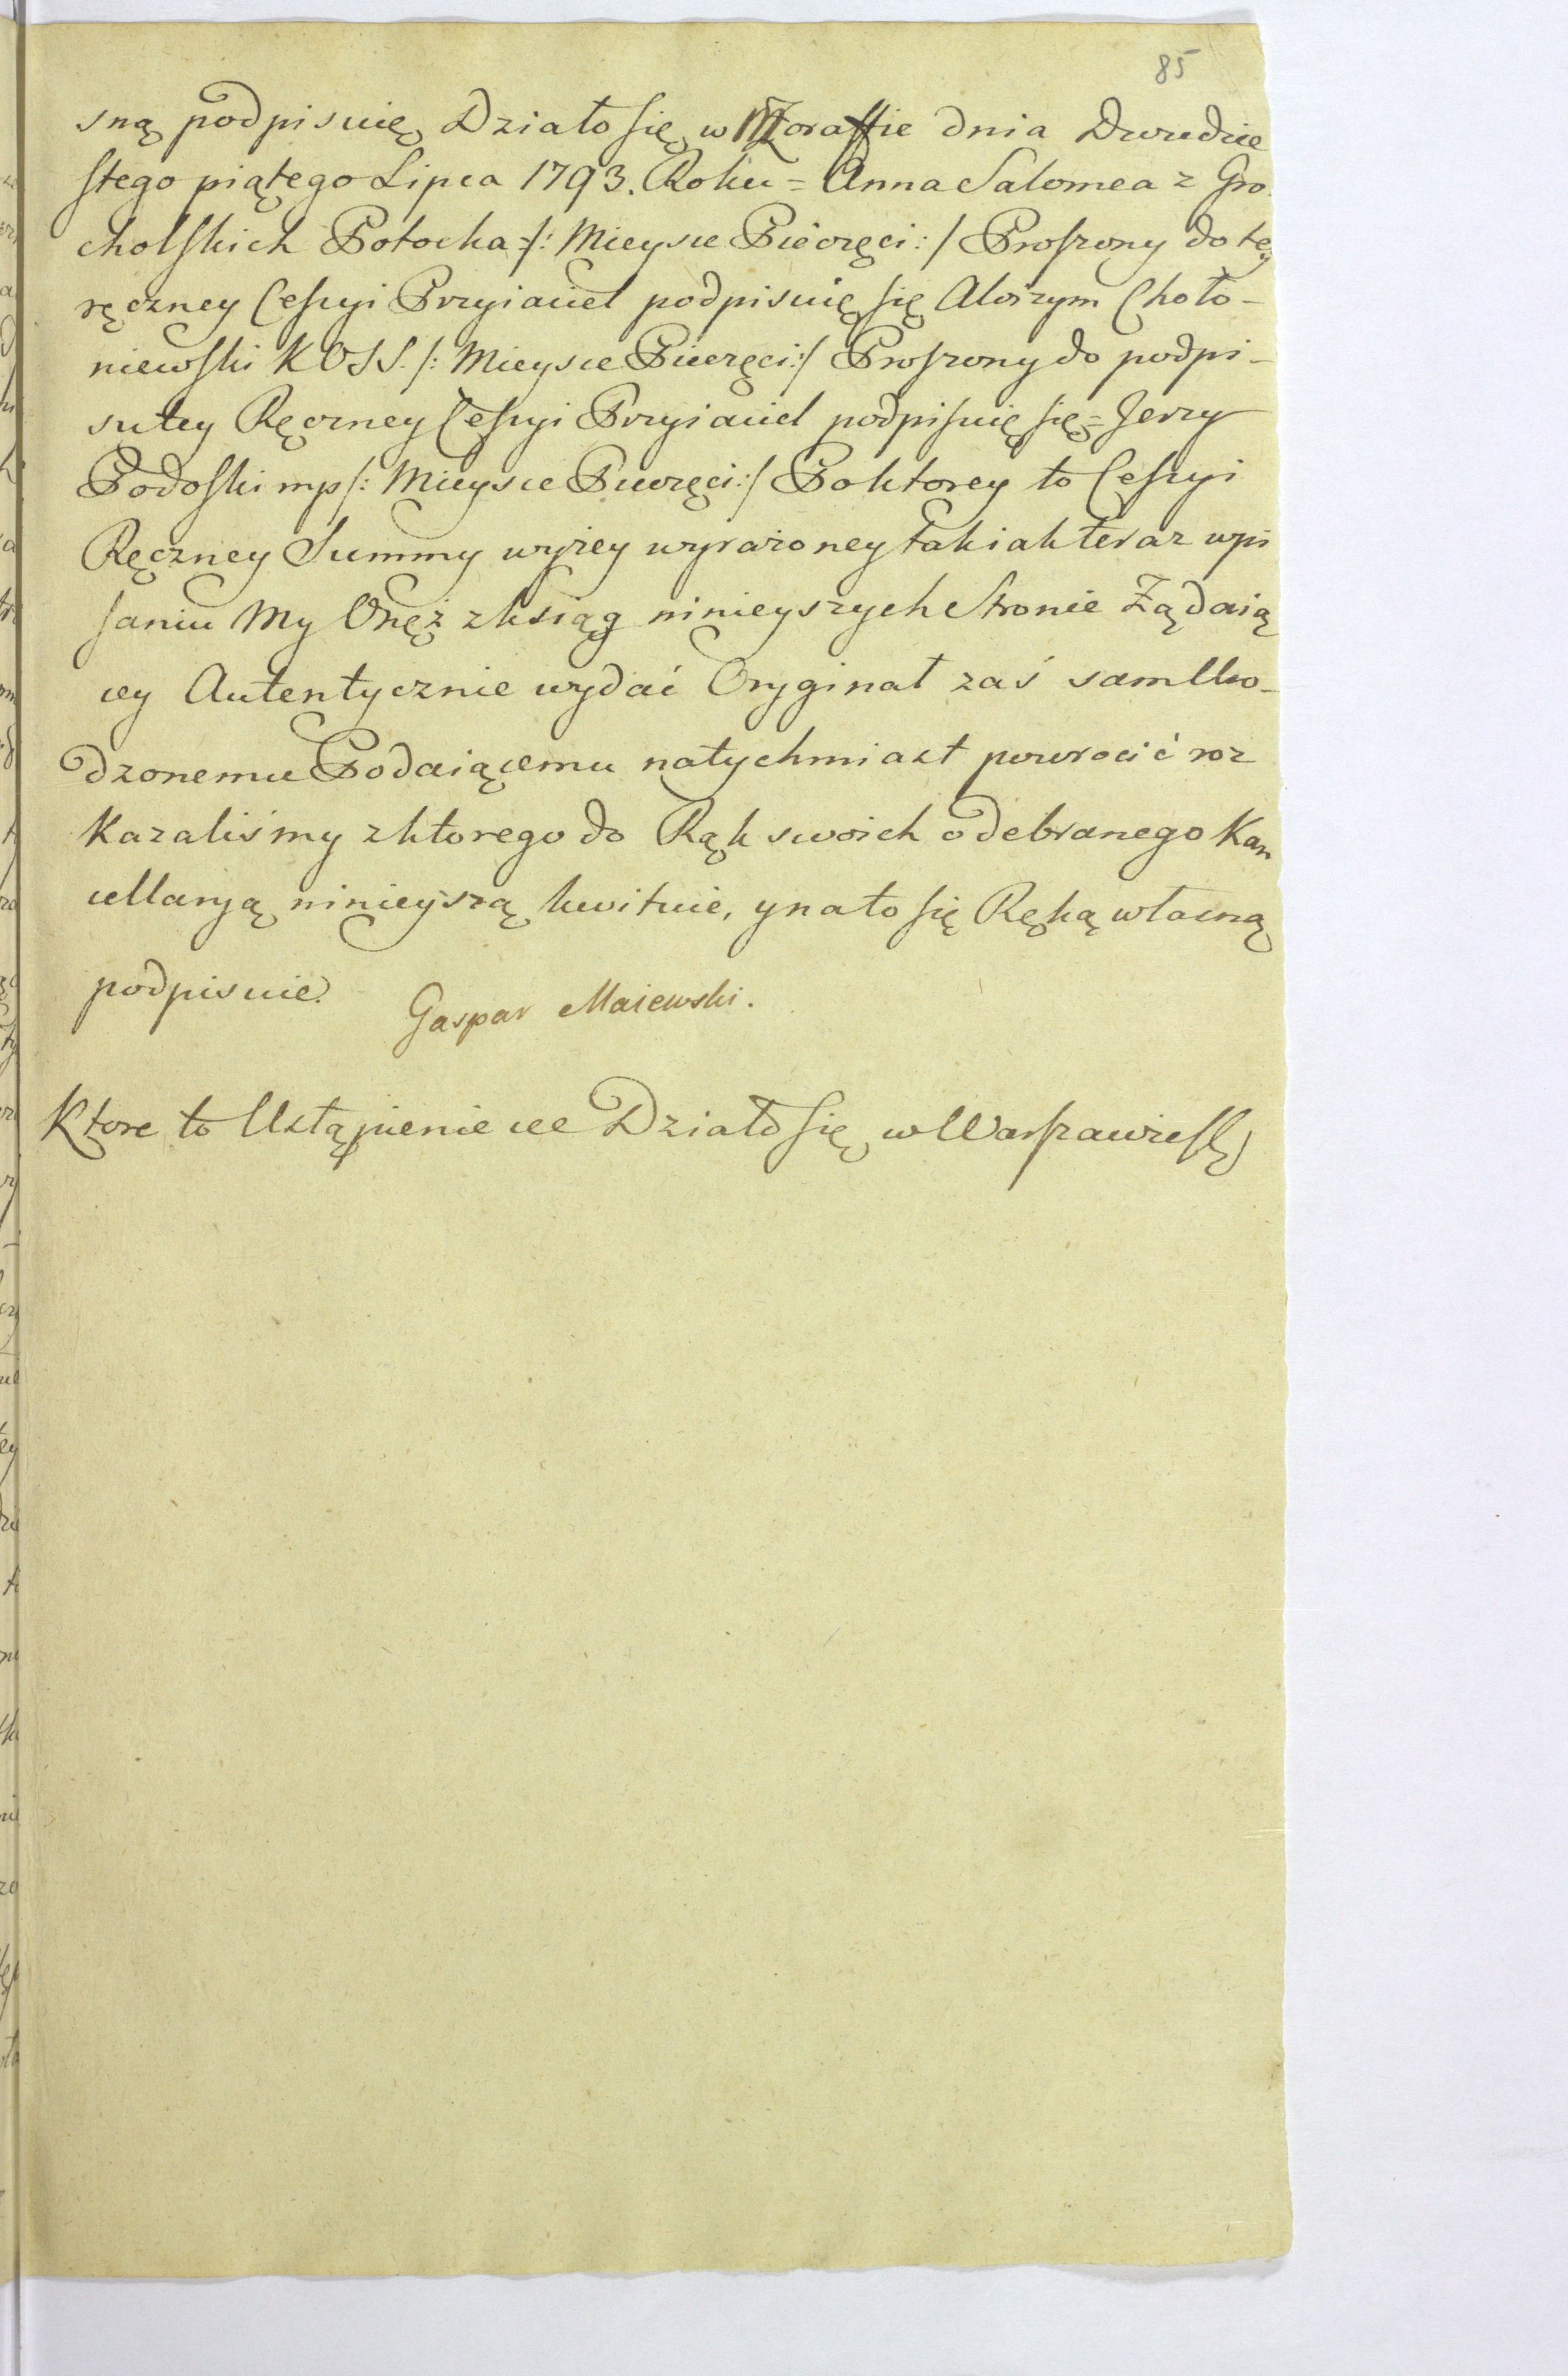 85
sną podpisuię Działo się w Moraffie dnia Dwudzie
stego piątego Lipca 1793. Roku = Anna Salomea z Gro
cholskich Potocka =/: Mieysce Pieczęci :/ Proszony do tey
ręczney Cessyi Przyiaciel podpisuię się Aloizym Choło-
niewski KOSS. /: Mieysce Pieczęci :/ Proszony do podpi-
su tey Ręczney Cessyi Przyiaciel podpisuię się = Jerzy
Podoski mp /: Mieysce Pieczęci :/ Po ktorey to Cessyi
Ręczney Summy wyżey wyrażoney tak iak teraz wpi
saniu My Onęż z ksiąg ninieyszych Stronie Żądaią
cey Autentycznie wydać Oryginał zaś samUro-
dzonemu Podaiącemu natychmiast powrocić roz
kazaliśmy z ktorego do Rąk swoich odebranego Kan
cellaryą ninieyszą kwituie, y na to się Ręką własną
podpisuie.
Gaspar Maiewski.
Ktore to Ustąpienie ce Działo się w Warszawie